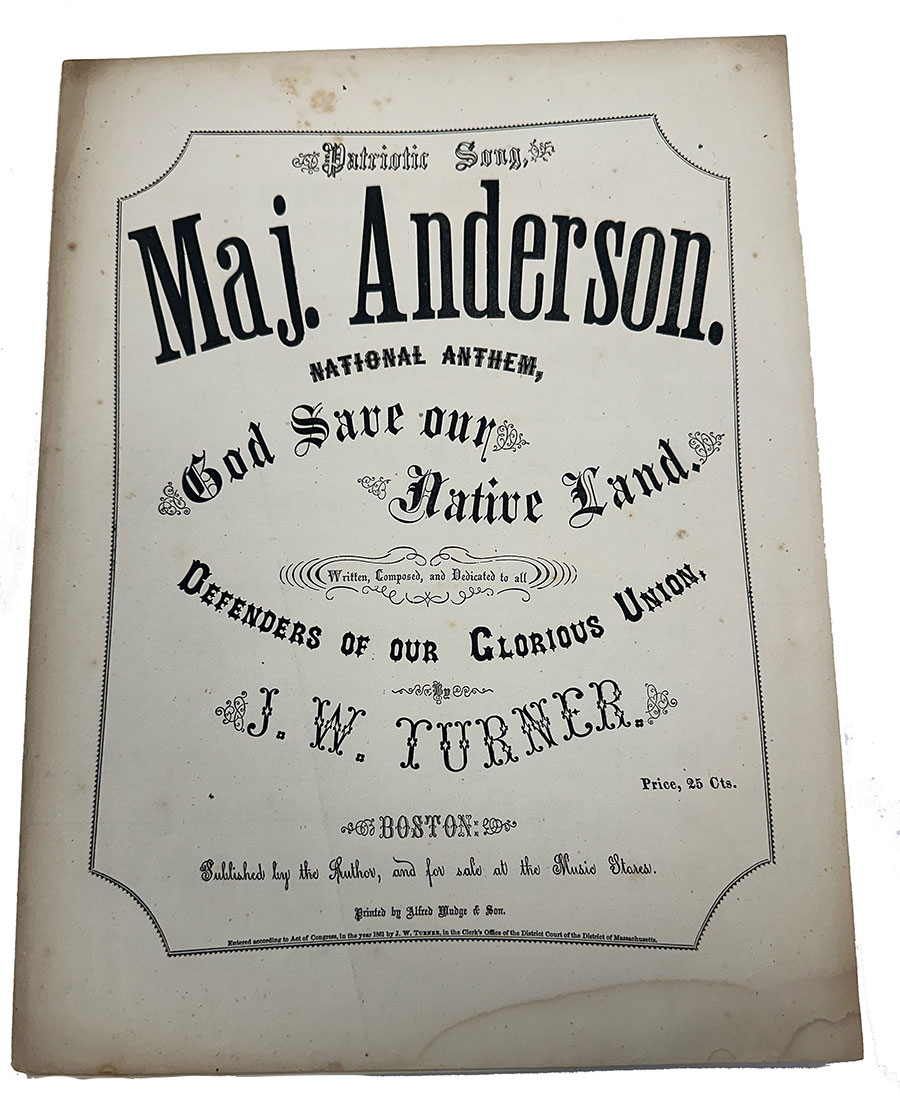 Patriotic Song,
Maj. Anderson.
NATIONAL ANTHEM,
God Save our
Native Land.
Written, Composed, and Dedicated to all
DEFENDERS OF OUR GLORIOUS UNION,
By
J. W. TURNER.
Price, 25 Cts.
BOSTON:
Published by the Author, and for sale at the Music Stores.
Printed by Alfred Mudge & Son.
Entered according to Act of Congress, in the year 1861 by J. W. TURNER, in the Clerk's Office of the District Court of the District of Massachusetts.